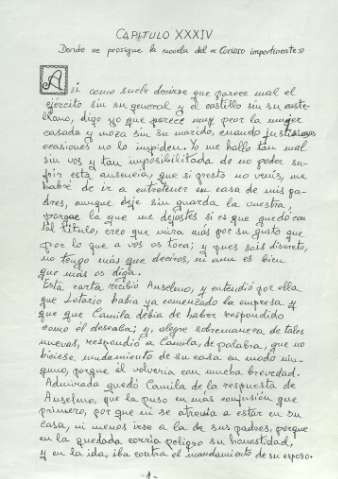 CAPITULO XXXIV
Donde se prosigue la novela del «Curioso impertinente»
Así como suele decirse que parece mal el
ejército sin su general y el castillo sin su caste-
llano, digo yo que parece muy peor la mujer
casada y moza sin su marido, cuando justísimas
ocasiones no lo impiden. Yo me hallo tan mal
sin vos y tan imposibilitada de no poder su-
frir esta ausencia, que si presto no venís, me
habré de ir a entretener en casa de mis pa-
dres, aunque deje sin guarda la vuestra;
porque la que me dejastes si es que quedó con
tal título, creo que mira más por su gusto que
por lo que a vos os toca; y pues sois discreto,
no tengo más que deciros, ni aun es bien
que más os diga.
Esta carta recibió Anselmo, y entendió por ella
que Lotario había ya comenzado la empresa y
que que Camila debía de haber respondido
como él deseaba; y, alegre sobremanera de tales
nuevas, respondió a Camila, de palabra, que no
hiciese mudamiento de su casa en modo nin-
guno, porque él volvería con mucha brevedad.
Admirada quedó Camila de la respuesta de
Anselmo, que la puso en más confusión que
primero, por que ni se atrevía a estar en su
casa, ni menos irse a la de sus padres, porque
en la quedada corría peligro su honestidad,
y en la ida, iba contra el mandamiento de su esposo.
-1-